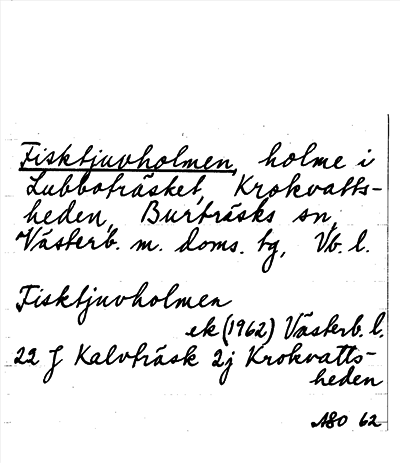 Fisktjuvholmen, holme i
Lubboträsket, Krokvatts-
heden, Burträsks sn,
Västerb. m. doms. tg, Vb. l.
Fisktjuvholmen
ek (1962) Västerb. l.
22 J Kalvträsk 2j Krokvatts-
heden
ASO 62